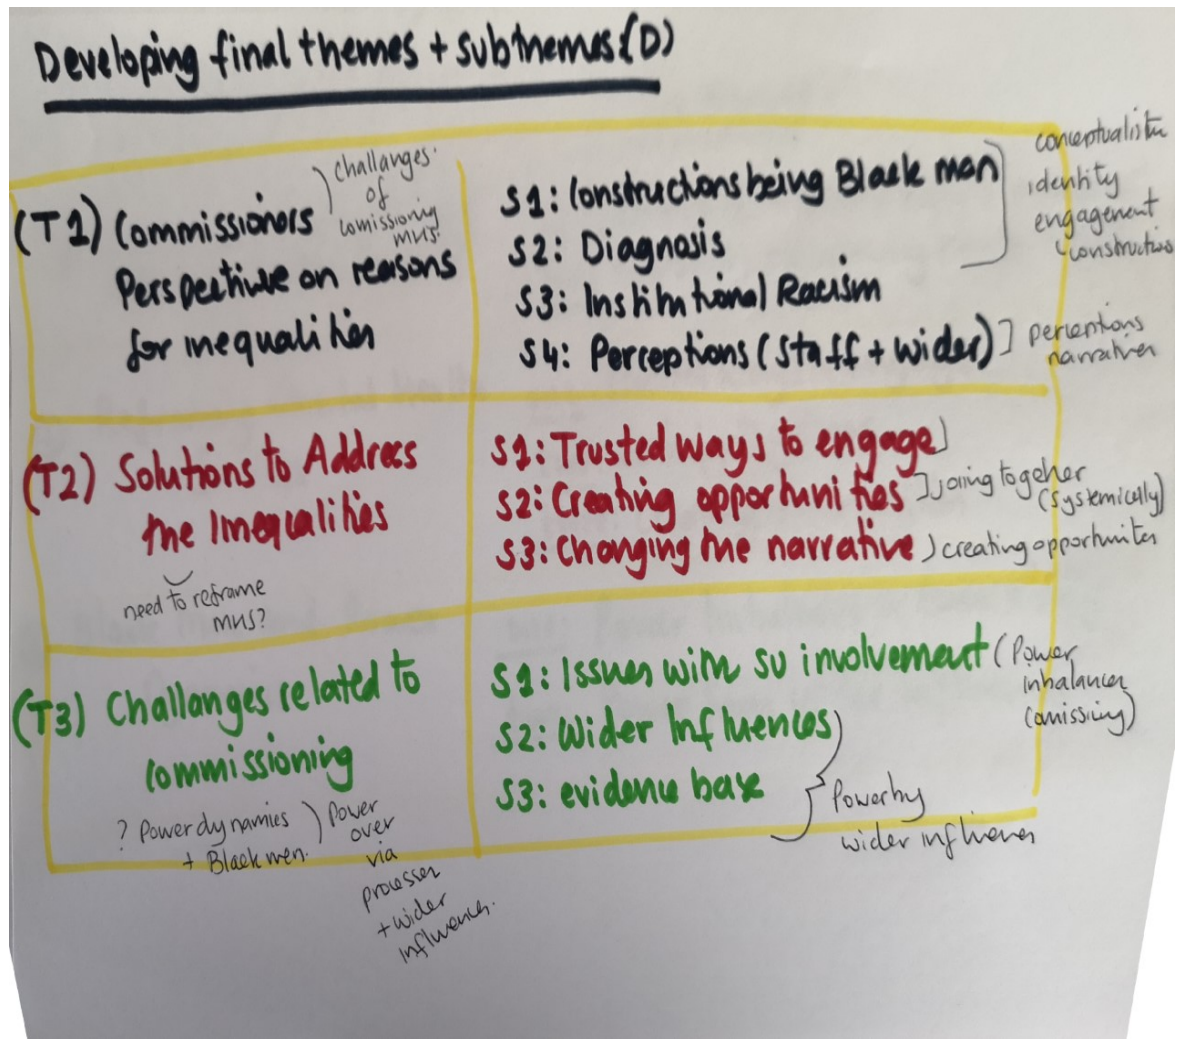 Developing final themes + subthemes (D)
(T1) Commissioners
Perspective on reasons
for inequalities
) challanges
of
comissioning
MHS.
S1: Constructions being Black man
S2: Diagnosis
S3: Institutional Racism
S4: Perceptions (Staff + wider)
identity
engagement
] perceptions
narratives
(T2) Solutions to Address
the Inequalities
need to reframe
MHS?
S1: Trusted ways to engage)
S2: Creating opportunities
S3: Changing the narrative
] joing together
(systemically)
) creating opportunites
(T3) Challanges related to
commissioning
? Power dynamics
+ Black men.
) Power
over
via
processes
+ wider
influences.
S1: Issues with SU involvement
S2: Wider Influences
S3: evidence base
(Power
inbalances
Power by
wider influences